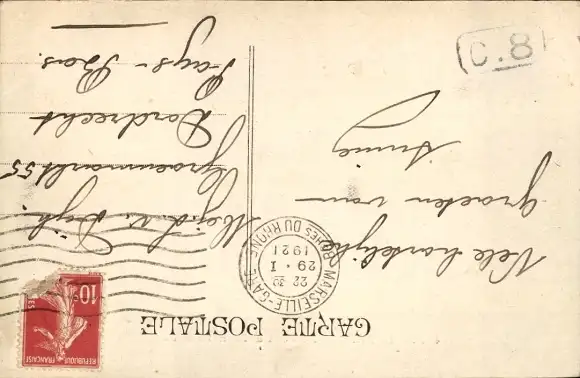 CARTE POSTALE
MARSEILLE-GARE
22 30
29 · I
1921
BCHES DU RHONE
10c
REPUBLIQUE FRANÇAISE
Vele hartelijke
groeten van
Annie
Mej. d. v. Dijk
Groenmarkt 55
Dordrecht
Pays-Bas.
C.8